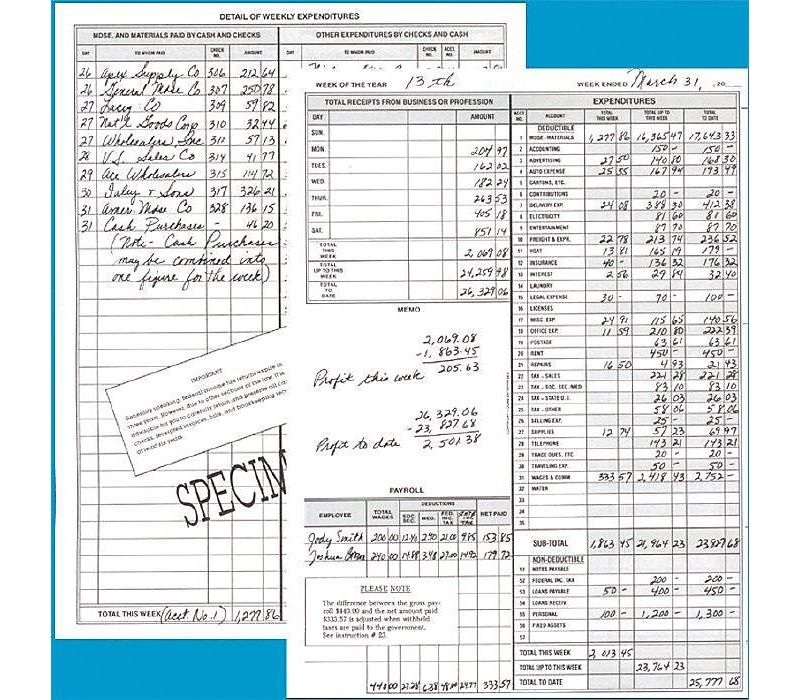 DETAIL OF WEEKLY EXPENDITURES
MDSE. AND MATERIALS PAID BY CASH AND CHECKS
OTHER EXPENDITURES BY CHECKS AND CASH
DAY TO WHOM PAID CHECK NO. AMOUNT
DAY TO WHOM PAID CHECK NO. ACCT. NO. AMOUNT
26 Apex Supply Co 306 212 64
26 General Mdse Co 307 250 78
27 Lacey Co 309 59 82
27 Nat'l Goods Corp 310 32 44
27 Wholesalers Inc 311 57 13
28 V.S. Sales Co 314 41 77
29 Ace Wholesalers 315 114 72
30 Faley + Sons 317 326 21
31 Amer Mdse Co 328 136 15
31 Cash Purchases - 46 20
(Note- Cash Purchases
may be combined into
one figure for the week)
IMPORTANT
SPECIM
TOTAL THIS WEEK (Acct. No. 1) 1,277 86
WEEK OF THE YEAR 13th
WEEK ENDED March 31, 20
TOTAL RECEIPTS FROM BUSINESS OR PROFESSION
DAY AMOUNT
SUN.
MON. 204 97
TUES. 162 02
WED. 182 24
THUR. 263 53
FRI. 405 18
SAT. 851 14
TOTAL THIS WEEK 2,069 08
TOTAL UP TO THIS WEEK 24,259 98
TOTAL TO DATE 26,329 06
MEMO
2,069.08
-1,863.45
Profit this week 205.63
26,329.06
-23,827.68
Profit to date 2,501.38
PAYROLL
EMPLOYEE TOTAL WAGES DEDUCTIONS NET PAID
SOC. SEC. MED. FED. INC. TAX STATE TAX
Jody Smith 200 00 12.40 2.90 21.00 9.85 153 85
Joshua 240 00 14.88 3.48 27.00 14.92 179 72
PLEASE NOTE
The difference between the gross pay-
roll $440.00 and the net amount paid
$333.57 is adjusted when withheld
taxes are paid to the government.
See instruction # 23.
440 00 27.28 6.38 48.00 24.77 333.57
EXPENDITURES
ACCT. NO. ACCOUNT TOTAL THIS WEEK TOTAL UP TO THIS WEEK TOTAL TO DATE
DEDUCTIBLE
1 MDSE - MATERIALS 1,277 86 16,365 47 17,643 33
2 ACCOUNTING 150 - 150 -
3 ADVERTISING 27 50 140 80 168 30
4 AUTO EXPENSE 25 55 167 94 193 49
5 CARTONS, ETC.
6 CONTRIBUTIONS 20 - 20 -
7 DELIVERY EXP. 24 08 388 30 412 38
8 ELECTRICITY 81 60 81 60
9 ENTERTAINMENT 87 70 87 70
10 FREIGHT & EXPR. 22 78 213 74 236 52
11 HEAT 13 81 165 19 179 -
12 INSURANCE 40 - 136 32 176 32
13 INTEREST 2 56 29 84 32 40
14 LAUNDRY
15 LEGAL EXPENSE 30 - 70 - 100 -
16 LICENSES
17 MISC. EXP. 24 91 115 65 140 56
18 OFFICE EXP. 11 59 210 80 222 39
19 POSTAGE 63 61 63 61
20 RENT 450 - 450 -
21 REPAIRS 16 50 4 93 21 43
22 TAX - SALES 221 28 221 28
23 TAX - SOC. SEC./MED 83 10 83 10
24 TAX - STATE U.I. 26 03 26 03
25 TAX - OTHER 58 06 58 06
26 SELLING EXP. 25 - 25 -
27 SUPPLIES 12 74 57 23 69 97
28 TELEPHONE 143 21 143 21
29 TRADE DUES, ETC. 20 - 20 -
30 TRAVELING EXP. 50 - 50 -
31 WAGES & COMM 333 57 2,418 43 2,752 -
32 WATER
33
34
35
SUB-TOTAL 1,863 45 21,964 23 23,827 68
NON-DEDUCTIBLE
51 NOTES PAYABLE
52 FEDERAL INC. TAX 200 - 200 -
53 LOANS PAYABLE 50 - 400 - 450 -
54 LOANS RECEIV
55 PERSONAL 100 - 1,200 - 1,300 -
56 FIXED ASSETS
57
TOTAL THIS WEEK 2,013 45
TOTAL UP TO THIS WEEK 23,764 23
TOTAL TO DATE 25,777 68